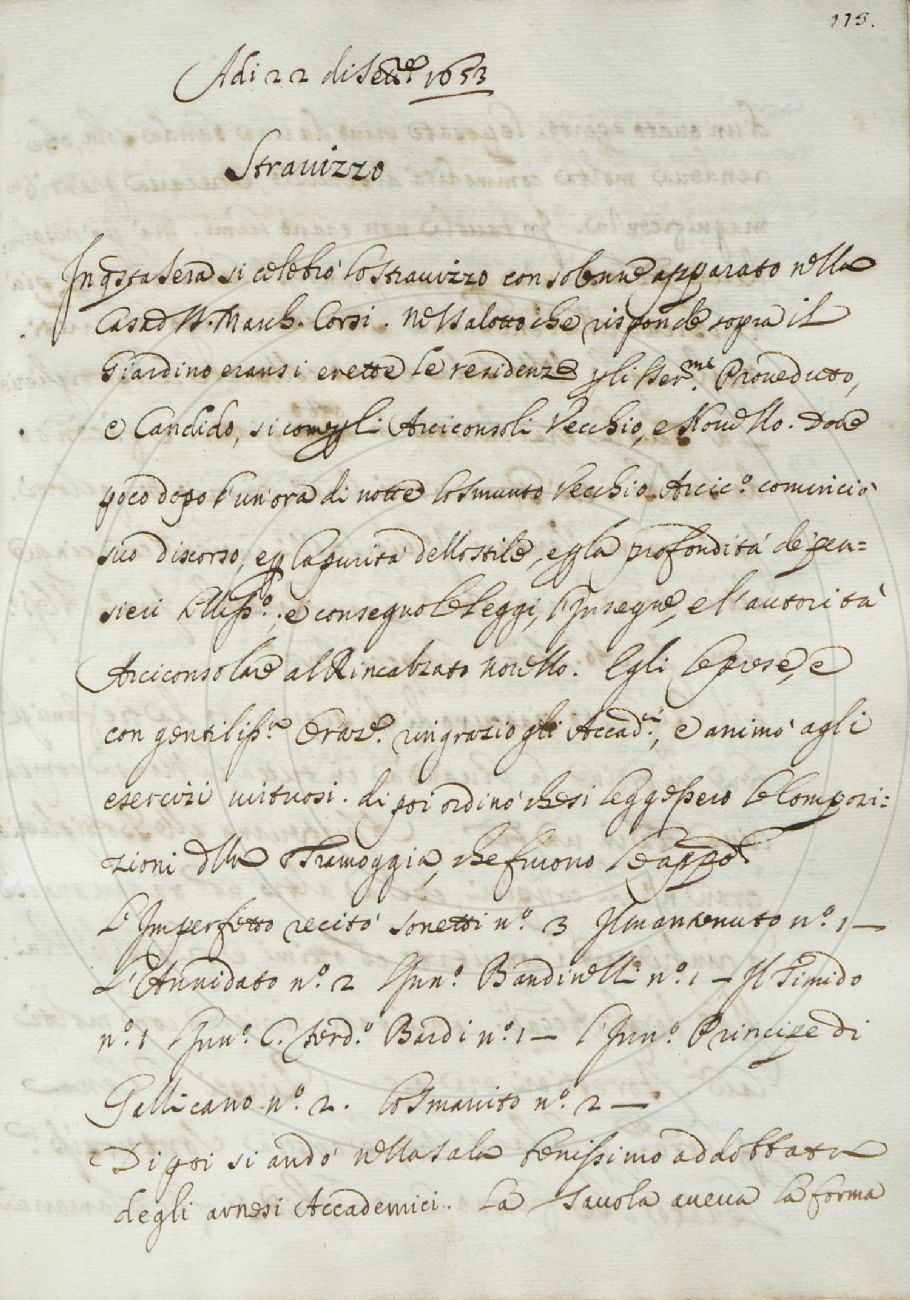 113.
Adi 22 di Sett.re 1653
Stravizzo
In qsta sera si celebrò lo stravizzo con solenne apparato nella
Casa d March. Corsi. nel salotto che risponde sopra il
Giardino eransi erette le residenze p gli Ser.mi Proveduto,
e Candido, si come p gli Arciconsoli Vecchio, e Novello. Dove
poco dopo l'un'ora di notte lo Smunto Vecchio Arcic.o cominciò
suo discorso, e p la purità dello stile, e p la profondità de pen=
sieri belliss.o e consegnò le leggi, l'Insegne, e l'autorità
Arciconsolare al Rincalzato novello. Egli le prese, e
con gentiliss.e oraz.e ringraziò gli Accad.ci, e animò agli
esercizi virtuosi. di poi ordinò che si leggessero le Compozi=
zioni dlla Tramoggia, che furono le appo
L'Imperfetto recitò sonetti n.o 3 Il mantenuto n.o 1 —
L'Annidato n.o 2 l'Inn.o Bandinelli n.o 1 — Il Timido
n.o 1 l'Inn.o C. Ferd.o Bardi n.o 1 — l'Inn.o Principe di
Gallicano n.o 2. lo Smarrito n.o 2 —
Di poi si andò nella sala benissimo addobbata
degli arnesi Accademici. La Tavola aveva la forma